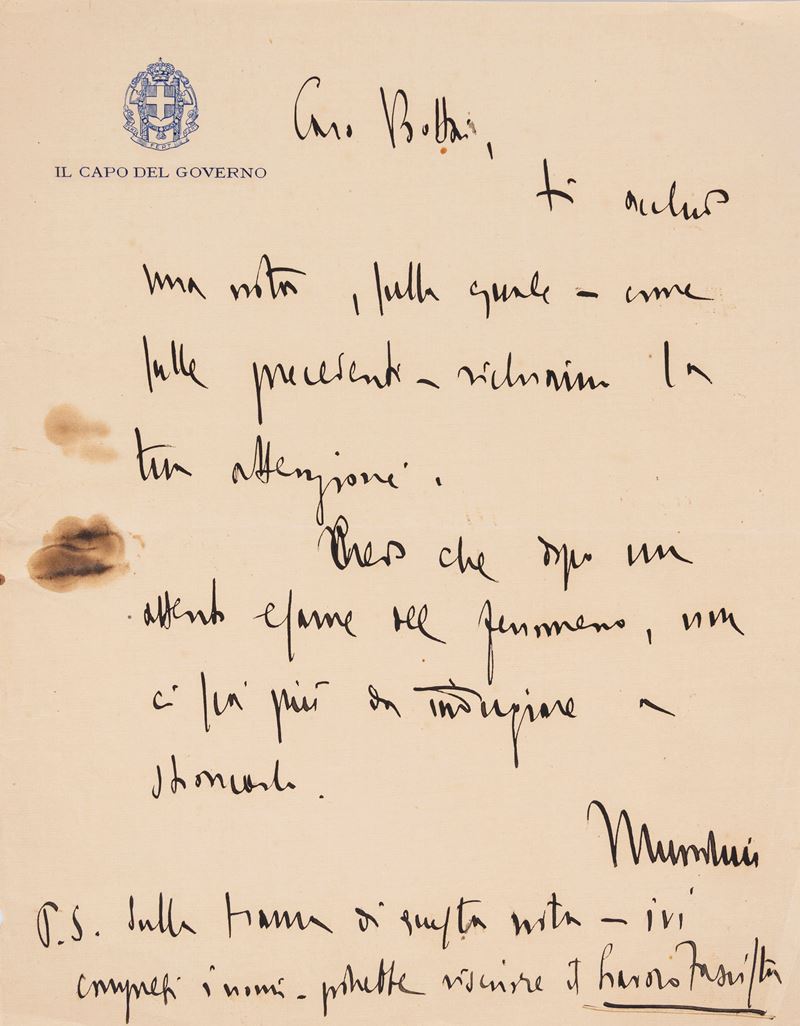 FERT
IL CAPO DEL GOVERNO
Caro Bottai,
ti accludo
una nota, sulla quale – come
sulle precedenti – richiamo la
tua attenzione.
Credo che dopo un
attento esame del fenomeno, non
ci sia più da indugiare a
stroncarlo.
Mussolini
P.S. Sulla trama di questa nota – ivi
compresi i nomi – potrebbe uscire il Lavoro Fascista